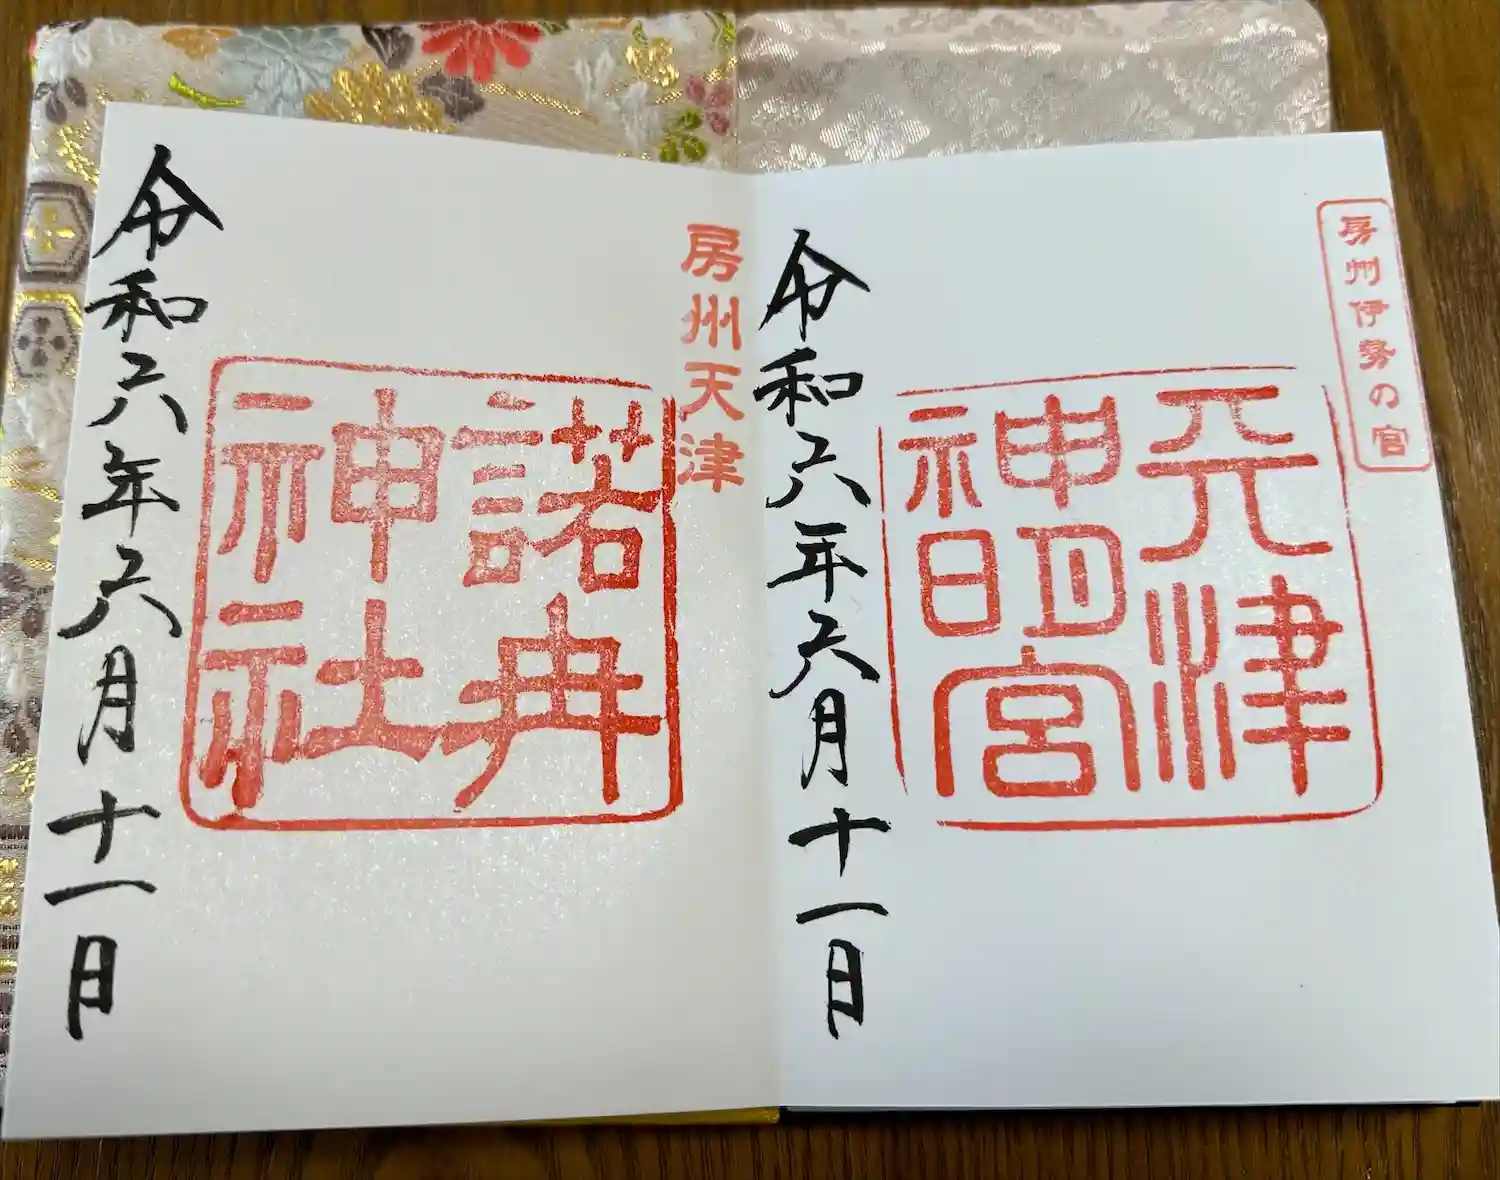 房州伊勢の宮
天津
神明宮
令和六年六月十一日
房州天津
諾冉
神社
令和六年六月十一日